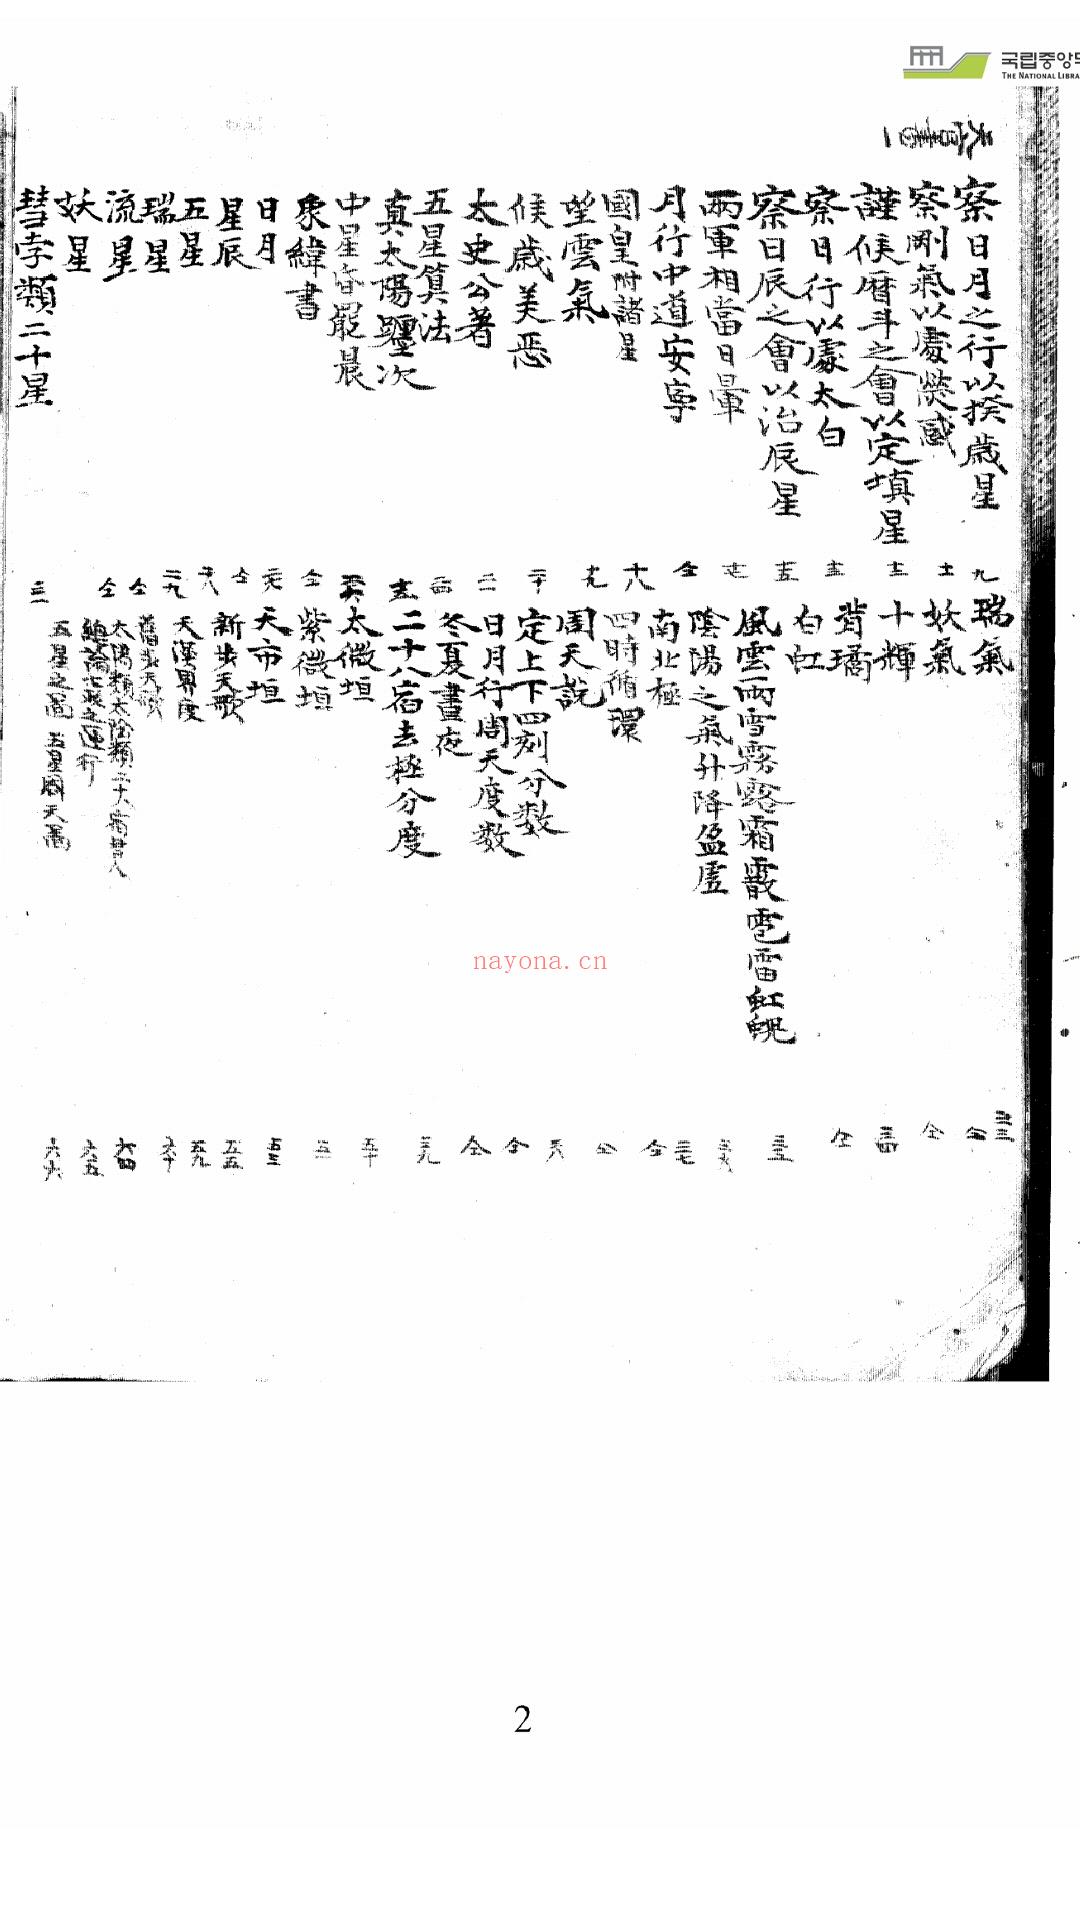 국립중앙도
THE NATIONAL LIBRA
天官書一
察日月之行以揆歳星
察剛氣以處熒惑
謹候曆斗之會以定填星
察日行以處太白
察日辰之會以治辰星
兩軍相當日暈
月行中道安寧
國皇附諸星
望雲氣
候歳美惡
太史公著
五星算法
真太陽躔次
中星昏罷晨
象緯書
日月
星辰
五星
瑞星
流星
妖星
彗孛類二十星
九
十二
十三
十五
十七
仝
十八
十九
二十
仝
仝
仝
瑞氣
妖氣
十輝
背璚
白虹
風雲雨雪霧露霜霰雹雷虹蜺
陰陽之氣升降盈虛
南北極
四時循環
周天說
定上下四刻分数
日月行周天度数
冬夏晝夜
二十八宿去極分度
太微垣
紫微垣
天市垣
新步天歌
天漢界度
舊步天歌
太陽類太陰類二十八宿
總論七政之運行
五星之圖
仝
仝
三四
仝
三五
三六
三七
仝
仝
仝
三九
五十
五二
五三
五五
五九
六十
六四
六五
六六
nayona.cn
2